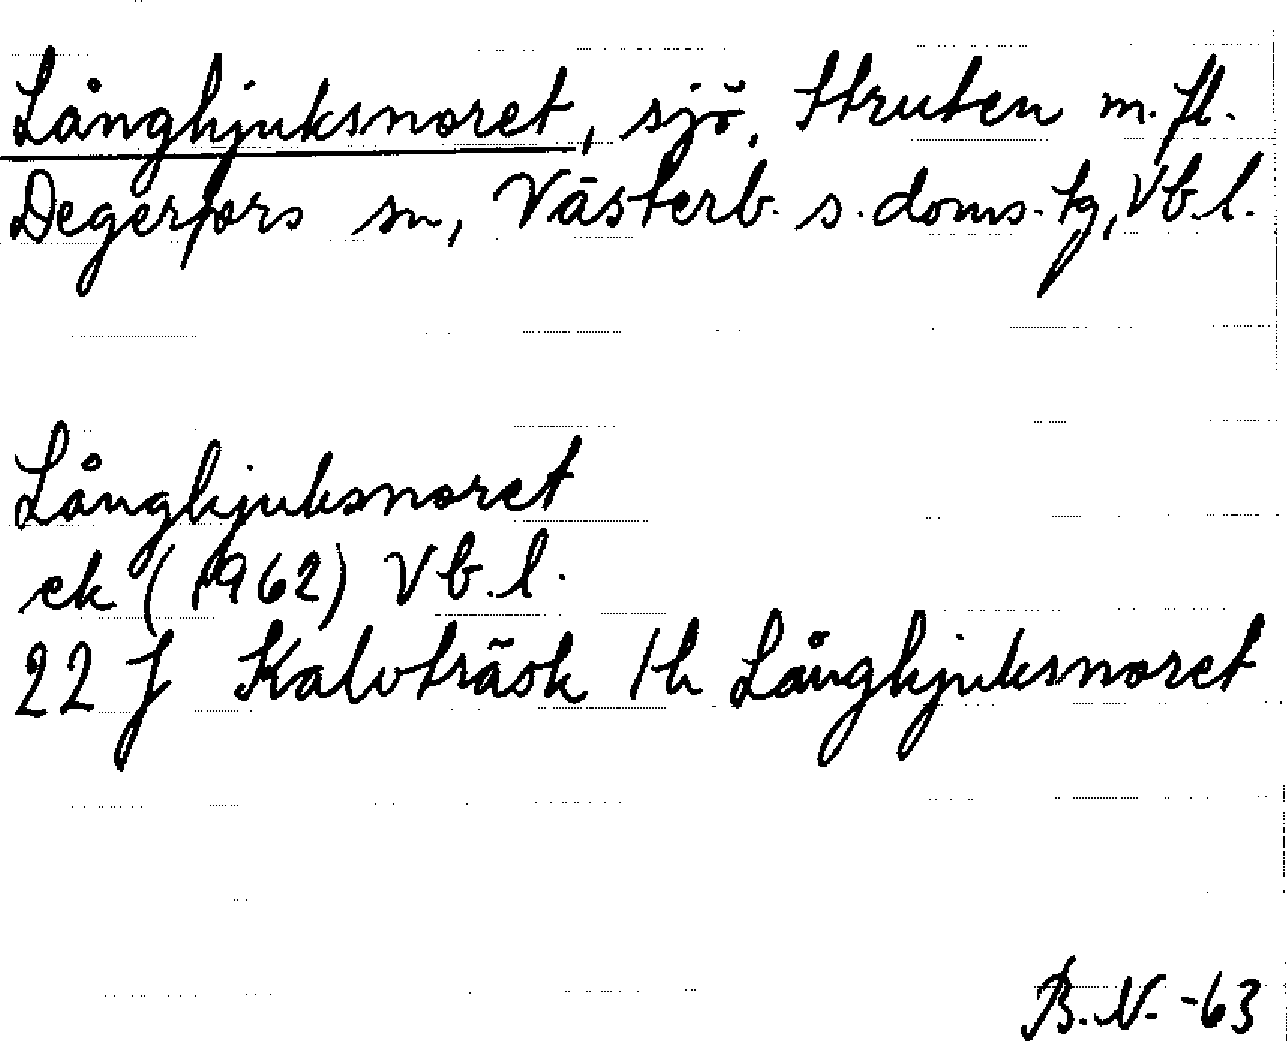 Långhjuksnoret, sjö, Struten m.fl.
Degerfors sn, Västerb. s. doms. tg, Vb.l.
Långhjuksnoret
ek (1962) Vb.l.
22 J Kalvträsk 1h Långhjuksnoret
B.N. -63